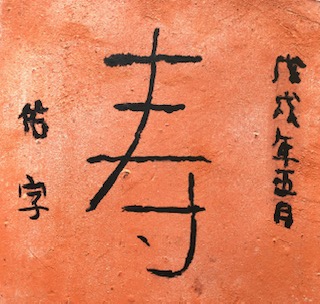 戊戌年五月
寿
佑字